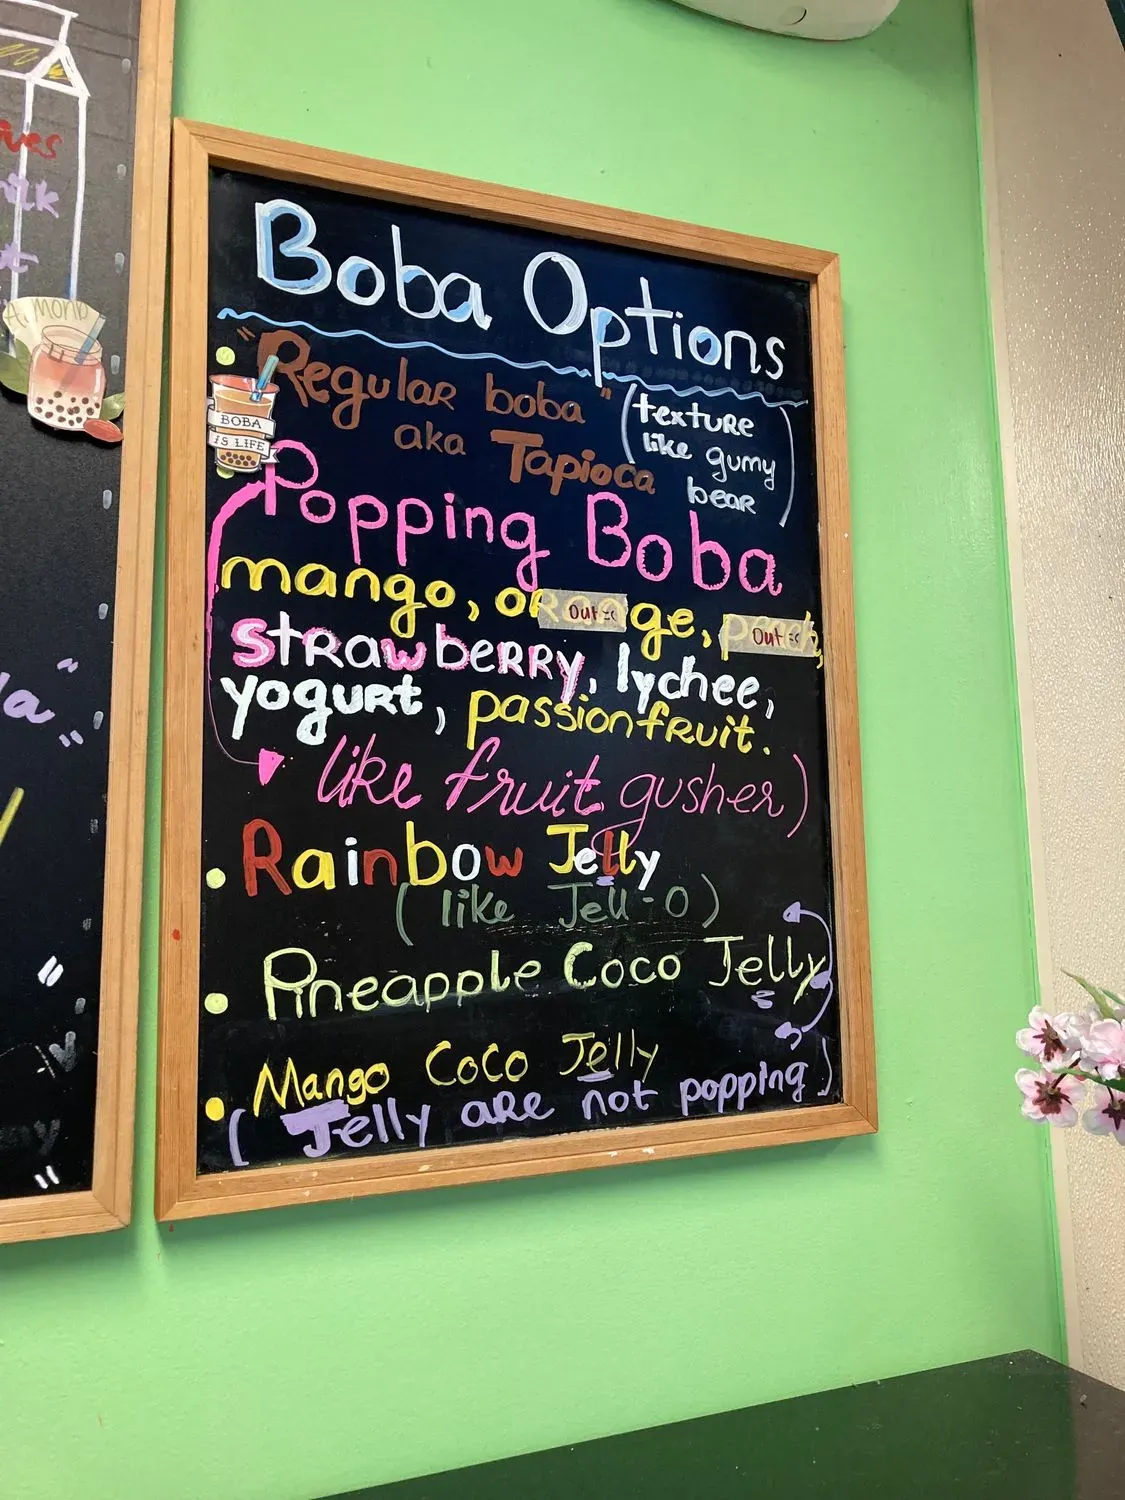 ves
Almond
Boba Options
"Regular boba"
aka Tapioca
(texture
like gumy
bear)
BOBA
IS LIFE
Popping Boba
mango, orange, peach,
out :(
out :(
strawberry, lychee,
yogurt, passionfruit.
like fruit gusher)
Rainbow Jelly
(like Jell-O)
Pineapple Coco Jelly
Mango Coco Jelly
(Jelly are not popping)